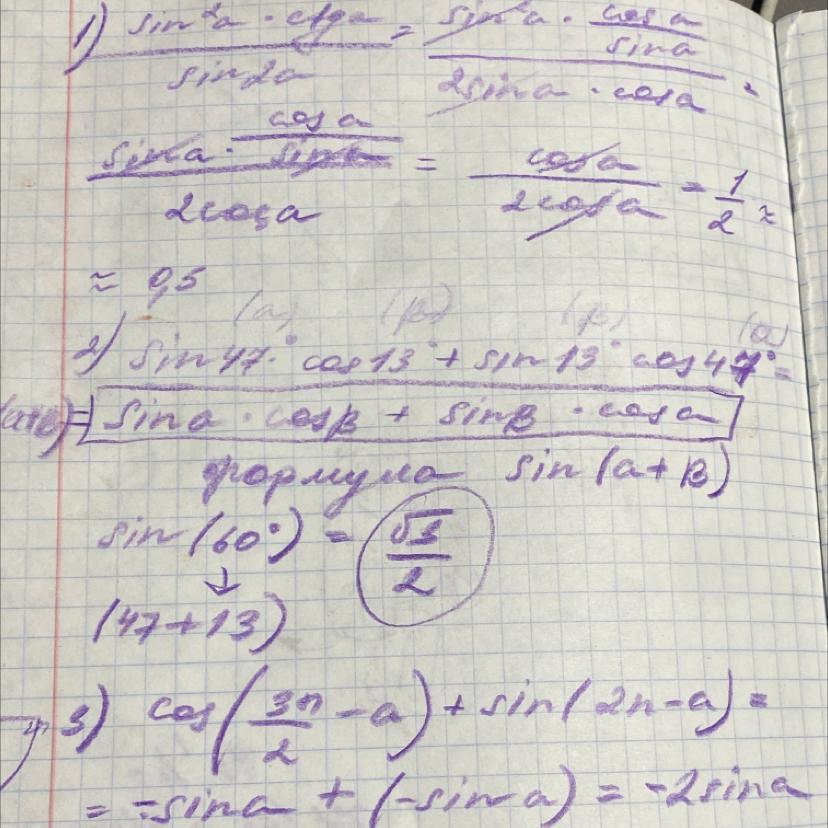 1) sin²a · ctga / sin2a = sin²a · cosa/sina / 2sina · cosa =
sina · cosa/sina / 2cosa = cosa / 2cosa = 1/2 ≈
≈ 0,5
(a) (β) (β) (a)
2) sin47° cos13° + sin13° cos47° =
(a+β) = sina · cosβ + sinβ · cosa
формула sin(a+β)
sin(60°) = √3/2
↓
(47+13)
3) cos(3π/2 - a) + sin(2π - a) =
= -sina + (-sina) = -2sina